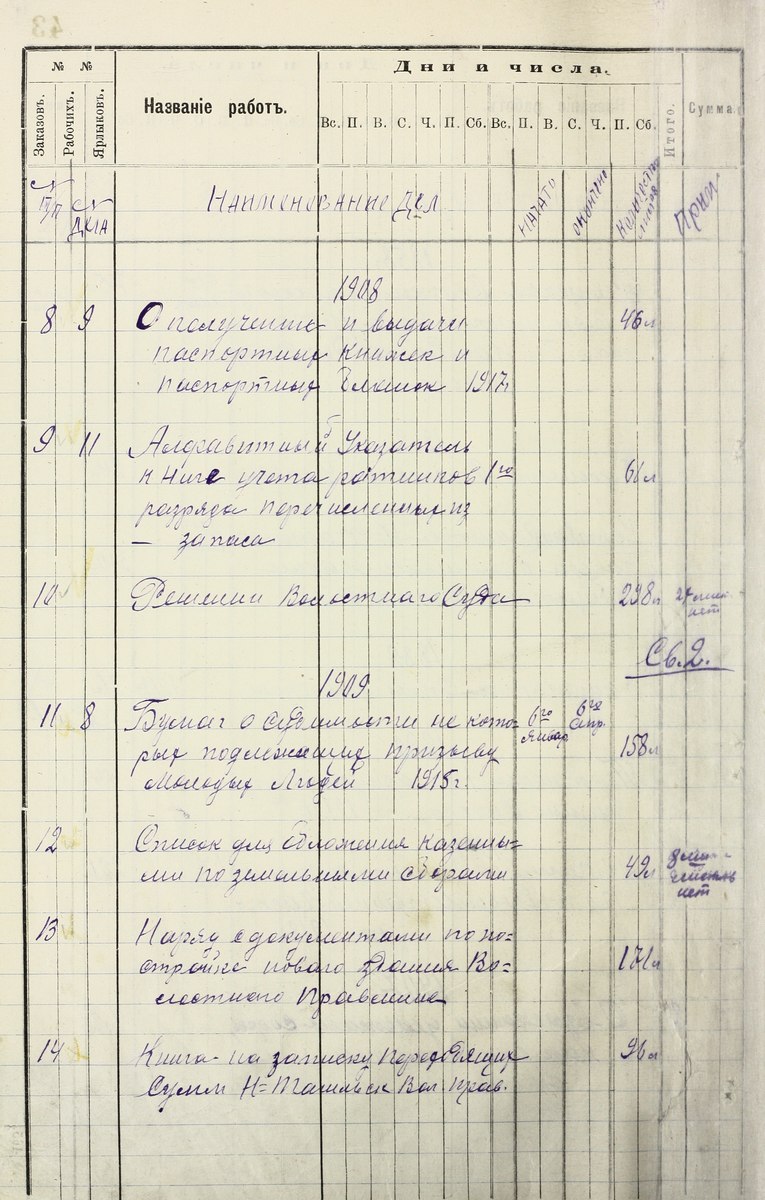 43
№ №
Дни и числа.
Заказовъ.
Рабочихъ.
Ярлыковъ.
Названіе работъ.
Вс. П. В. С. Ч. П. Сб. Вс. П. В. С. Ч. П. Сб.
Итого.
Сумма.
№ п/п
№ дела
Наименование дел
начато
окончено
количество листов
Прим
1908
8 9 О получении и выдачи 46 л
паспортных книжек и
паспортных бланок 1917 г
9 11 Алфавитный Указатель
к ниге учета ратников 1го 61 л
разряда перечисленных из
— запаса
10 Решении Волостнаго Суда 298 л
нет
Св. 2.
1909
11 8 Бумаг о судимости не кото= 6го Январ 6го Апр.
рых подлежащих призыву 158 л
молодых Людей 1915 г.
12 Список для обложения казенны=
ми поземельными сборами 49 л
нет
13 Наряд с документами по по=
стройке нового здания Во= 171 л
лостного Правления
14 Книга на записку переходящих 96 л
Сумм Н=Тагильск Вол. Прав.